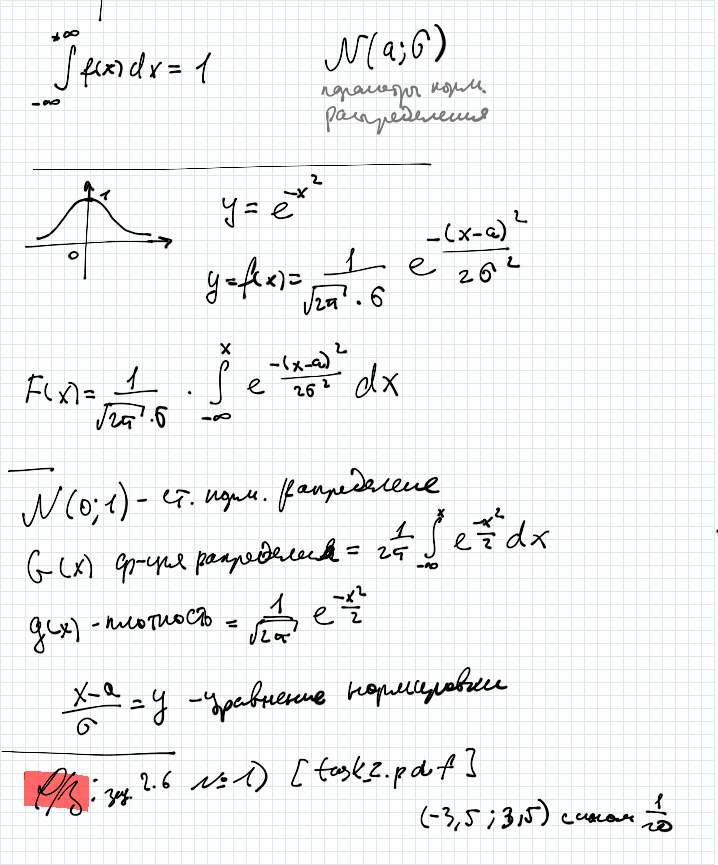 +∞
∫ f(x) dx = 1
-∞
N(a;б)
параметры норм.
распределения
1
0
y = e^{-x^2}
y=f(x)= 1/(√2π · б) e^{-(x-a)^2/2б^2}
F(x)= 1/(√2π · б) · ∫_{-∞}^{x} e^{-(x-a)^2/2б^2} dx
N(0;1) - ст. норм. распределение
G(x) ф-ция распределен = 1/2π ∫_{-∞}^{x} e^{-x^2/2} dx
g(x) - плотность = 1/√2π e^{-x^2/2}
(x-a)/б = y - уравнение нормировки
Р/З: зад. 2.6 №1) [task_2.pdf]
(-3,5 ; 3,5) с шагом 1/20